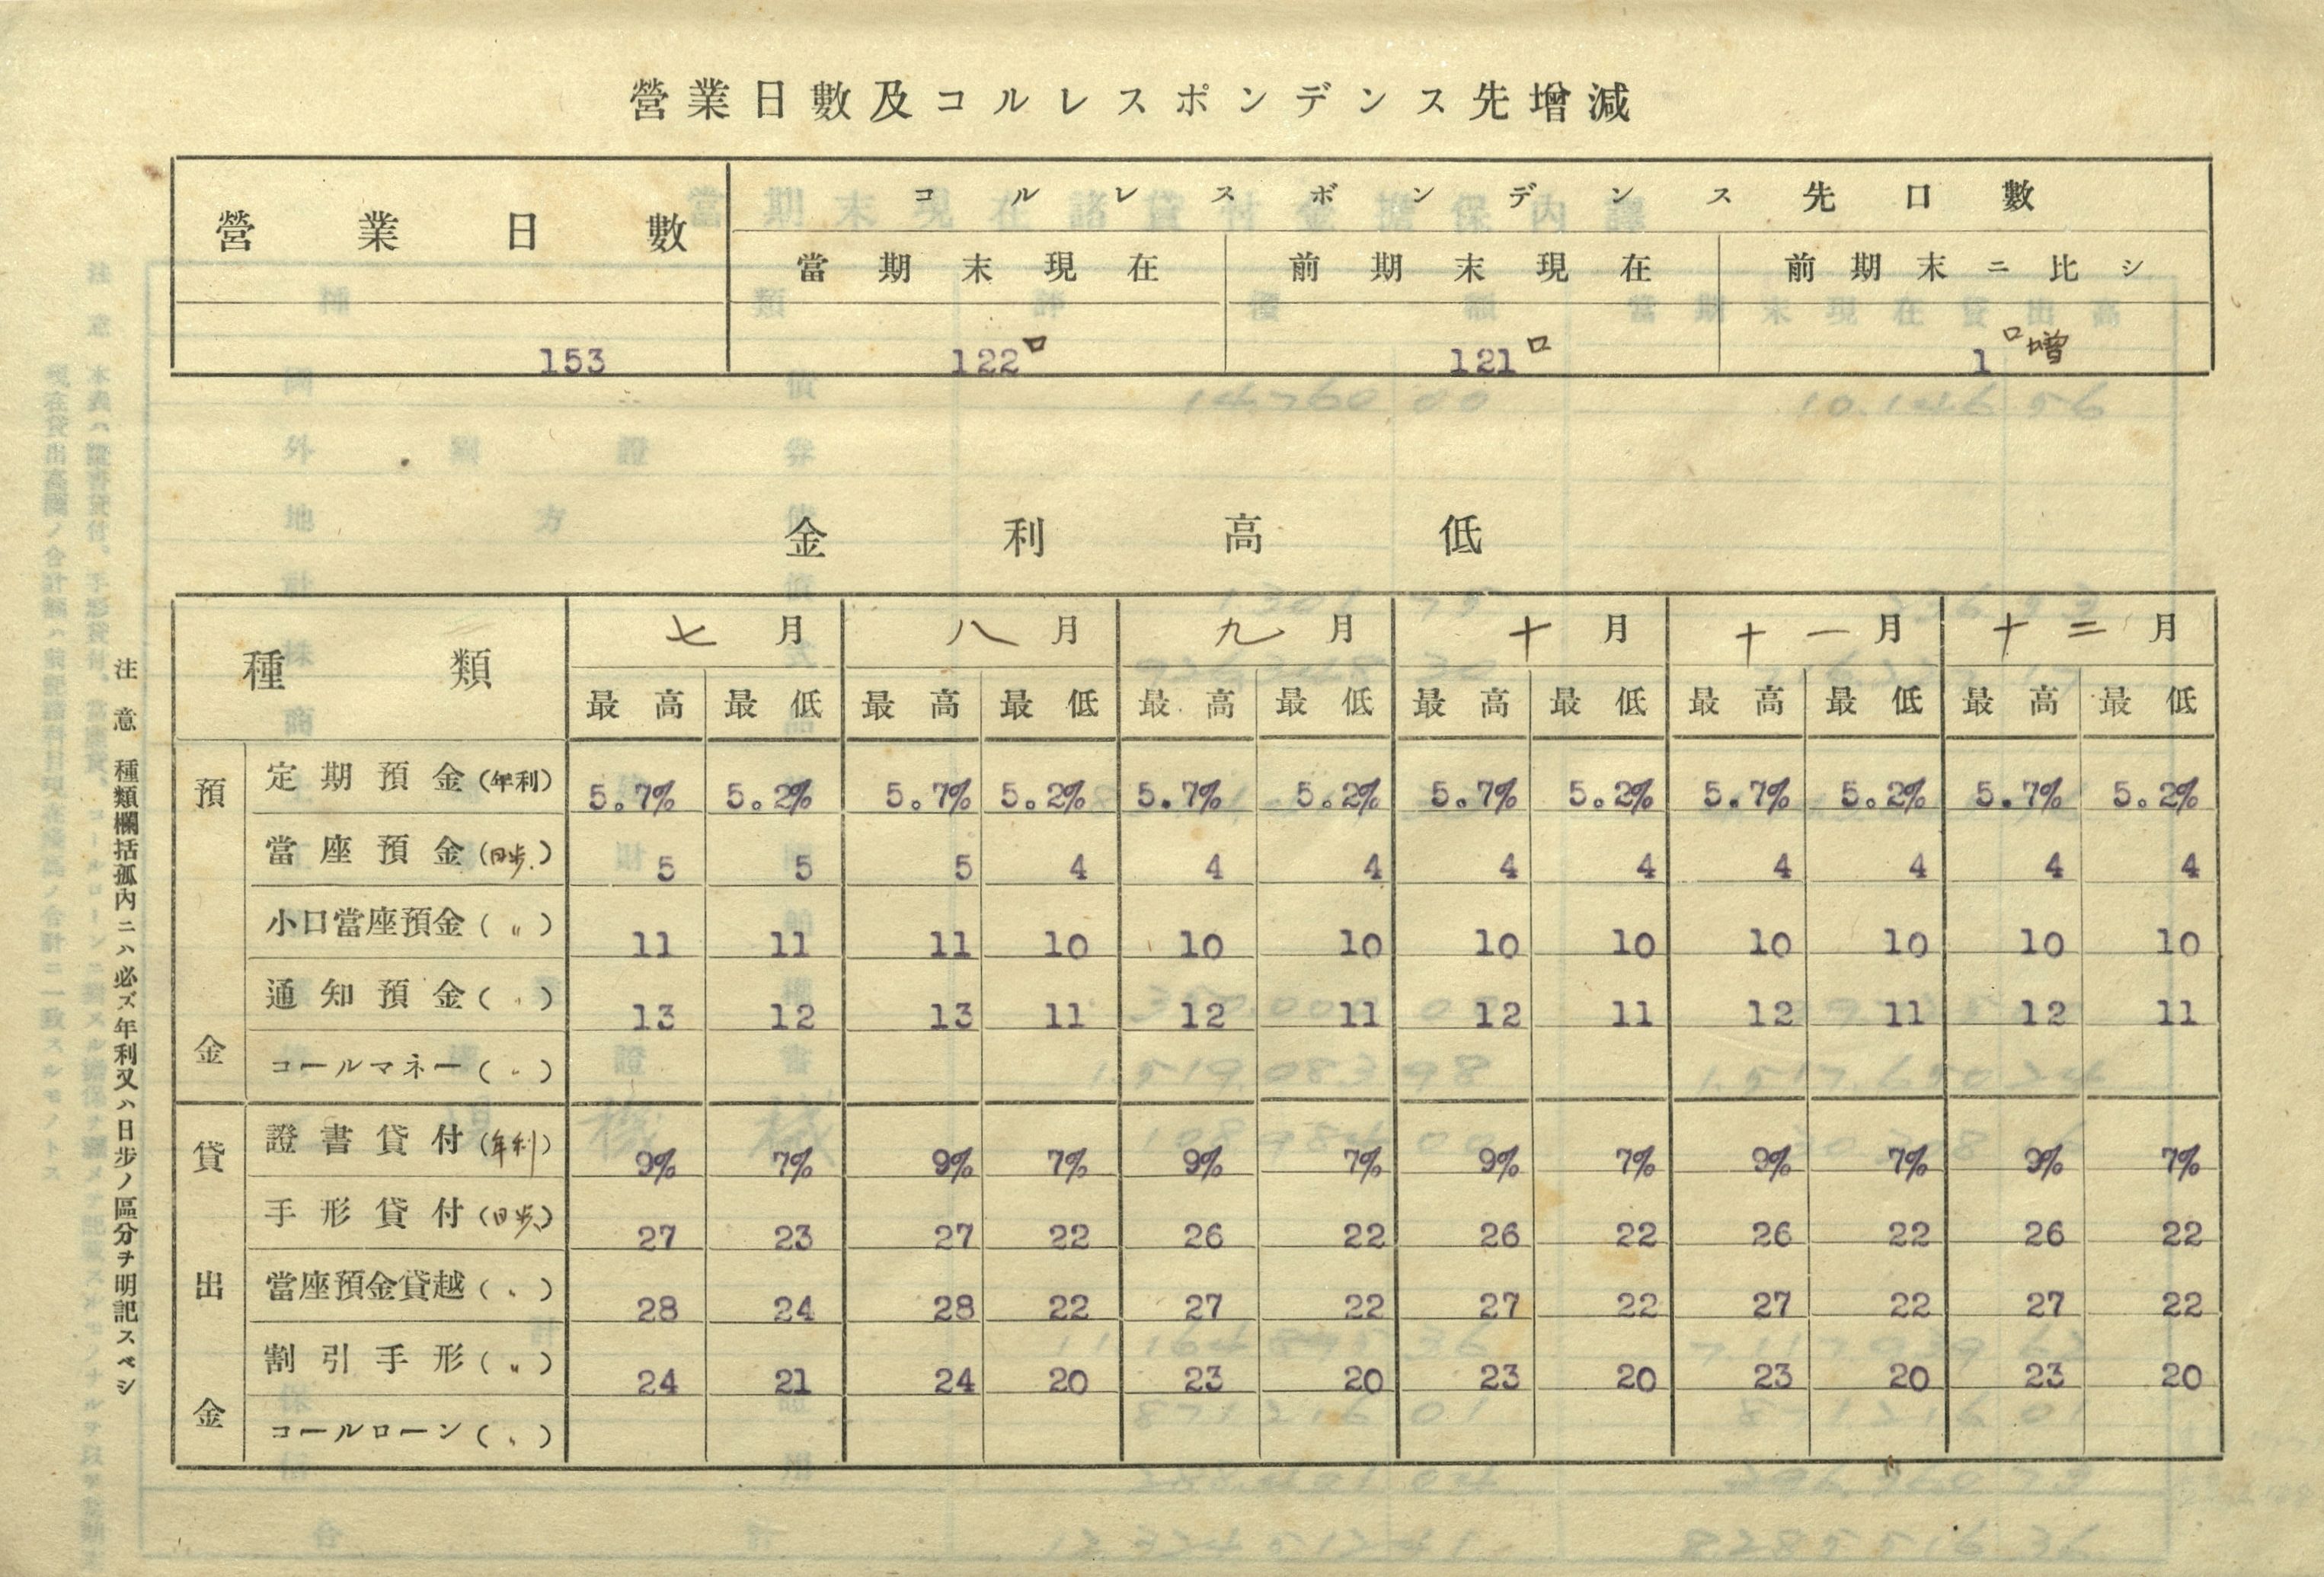 營業日數及コルレスポンデンス先增減
營業日數 コルレスポンデンス先口數
當期末現在 前期末現在 前期末ニ比シ
153 122口 121口 1口増
金利高低
種類 七月 八月 九月 十月 十一月 十二月
最高 最低 最高 最低 最高 最低 最高 最低 最高 最低 最高 最低
預金
定期預金(年利) 5.7% 5.2% 5.7% 5.2% 5.7% 5.2% 5.7% 5.2% 5.7% 5.2% 5.7% 5.2%
當座預金(日歩) 5 5 5 4 4 4 4 4 4 4 4 4
小口當座預金(〃) 11 11 11 10 10 10 10 10 10 10 10 10
通知預金(〃) 13 12 13 11 12 11 12 11 12 11 12 11
コールマネー(〃)
貸出金
證書貸付(年利) 9% 7% 9% 7% 9% 7% 9% 7% 9% 7% 9% 7%
手形貸付(日歩) 27 23 27 22 26 22 26 22 26 22 26 22
當座預金貸越(〃) 28 24 28 22 27 22 27 22 27 22 27 22
割引手形(〃) 24 21 24 20 23 20 23 20 23 20 23 20
コールローン(〃)
注意 種類欄括孤內ニハ必ズ年利又ハ日步ノ區分ヲ明記スベシ